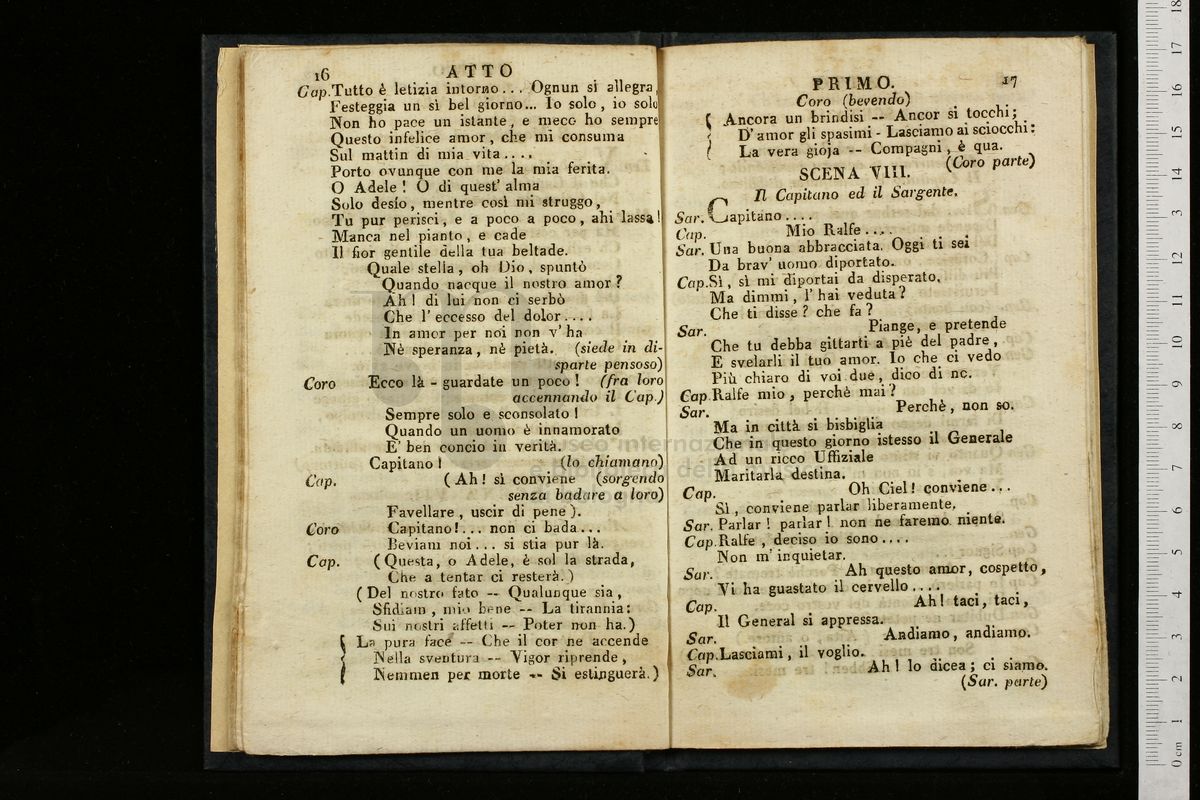 16 ATTO
Cap. Tutto è letizia intorno... Ognun si allegra,
Festeggia un sì bel giorno... Io solo, io solo
Non ho pace un istante, e meco ho sempre
Questo infelice amor, che mi consuma
Sul mattin di mia vita....
Porto ovunque con me la mia ferita.
O Adele! O di quest' alma
Solo desío, mentre così mi struggo,
Tu pur perisci, e a poco a poco, ahi lassa!
Manca nel pianto, e cade
Il fior gentile della tua beltade.
Quale stella, oh Dio, spuntò
Quando nacque il nostro amor?
Ah! di lui non ci serbò
Che l' eccesso del dolor....
In amor per noi non v' ha
Nè speranza, nè pietà. (siede in di-
sparte pensoso)
Coro Ecco là - guardate un poco! (fra loro
accennando il Cap.)
Sempre solo e sconsolato!
Quando un uomo è innamorato
E' ben concio in verità.
Capitano! (lo chiamano)
Cap. (Ah! sì conviene (sorgendo
senza badare a loro)
Favellare, uscir di pene).
Coro Capitano!... non ci bada...
Beviam noi... si stia pur là.
Cap. (Questa, o Adele, è sol la strada,
Che a tentar ci resterà.)
(Del nostro fato -- Qualunque sia,
Sfidiam, mio bene -- La tirannia:
Sui nostri affetti -- Poter non ha.)
La pura face -- Che il cor ne accende
Nella sventura -- Vigor riprende,
Nemmen per morte -- Si estinguerà.)
PRIMO. 17
Coro (bevendo)
Ancora un brindisi -- Ancor si tocchi;
D' amor gli spasimi - Lasciamo ai sciocchi:
La vera gioja -- Compagni, è qua.
(Coro parte)
SCENA VIII.
Il Capitano ed il Sargente.
Sar. Capitano....
Cap. Mio Ralfe....
Sar. Una buona abbracciata. Oggi ti sei
Da brav' uomo diportato.
Cap. Sì, sì mi diportai da disperato.
Ma dimmi, l' hai veduta?
Che ti disse? che fa?
Sar. Piange, e pretende
Che tu debba gittarti a piè del padre,
E svelarli il tuo amor. Io che ci vedo
Più chiaro di voi due, dico di nc.
Cap. Ralfe mio, perchè mai?
Sar. Perchè, non so.
Ma in città si bisbiglia
Che in questo giorno istesso il Generale
Ad un ricco Uffiziale
Maritarla destina.
Cap. Oh Ciel! conviene...
Sì, conviene parlar liberamente.
Sar. Parlar! parlar! non ne faremo niente.
Cap. Ralfe, deciso io sono....
Non m' inquietar.
Sar. Ah questo amor, cospetto,
Vi ha guastato il cervello....
Cap. Ah! taci, taci,
Il General si appressa.
Sar. Andiamo, andiamo.
Cap. Lasciami, il voglio.
Sar. Ah! lo dicea; ci siamo.
(Sar. parte)